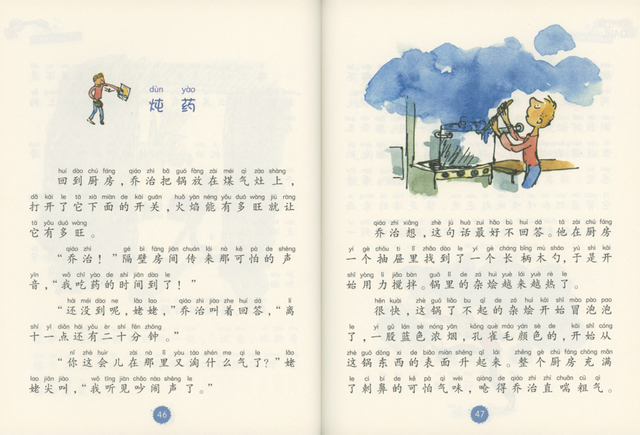 dùn yào
炖 药
huí dào chú fáng qiáo zhì bǎ guō fàng zài méi qì zào shàng
回到厨房，乔治把锅放在煤气灶上，
dǎ kāi le tā xià miàn de kāi guān huǒ yàn néng yǒu duō wàng jiù ràng
打开了它下面的开关，火焰能有多旺就让
tā yǒu duō wàng
它有多旺。
qiáo zhì gé bì fáng jiān chuán lái nà kě pà de shēng
“乔治！”隔壁房间传来那可怕的声
yīn wǒ chī yào de shí jiān dào le
音，“我吃药的时间到了！”
hái méi dào ne lǎo lao qiáo zhì jiào zhe huí dá lí
“还没到呢，姥姥，”乔治叫着回答，“离
shí yī diǎn hái yǒu èr shí fēn zhōng
十一点还有二十分钟。”
nǐ zhè huìr zài nà lǐ yòu táo shén me qì le lǎo
“你这会儿在那里又淘什么气了？”姥
lao jiān jiào wǒ tīng jiàn chǎo nào shēng le
姥尖叫，“我听见吵闹声了。”
46
qiáo zhì xiǎng zhè jù huà zuì hǎo bù huí dá tā zài chú fáng
乔治想，这句话最好不回答。他在厨房
yí gè chōu tì lǐ zhǎo dào le yí gè cháng bǐng mù sháo yú shì kāi
一个抽屉里找到了一个长柄木勺，于是开
shǐ yòng lì jiǎo bàn guō lǐ de zá huì yuè lái yuè rè le
始用力搅拌。锅里的杂烩越来越热了。
hěn kuài zhè guō liǎo bu qǐ de zá huì kāi shǐ mào pào pao
很快，这锅了不起的杂烩开始冒泡泡
le yì gǔ lán sè nóng yān kǒng què máo yán sè de kāi shǐ cóng
了，一股蓝色浓烟，孔雀毛颜色的，开始从
zhè guō dōng xi de biǎo miàn shēng qǐ lái zhěng gè chú fáng chōng mǎn
这锅东西的表面升起来。整个厨房充满
le cì bí de kě pà qì wèi qiàng de qiáo zhì zhí chuǎn cū qì
了刺鼻的可怕气味，呛得乔治直喘粗气。
47